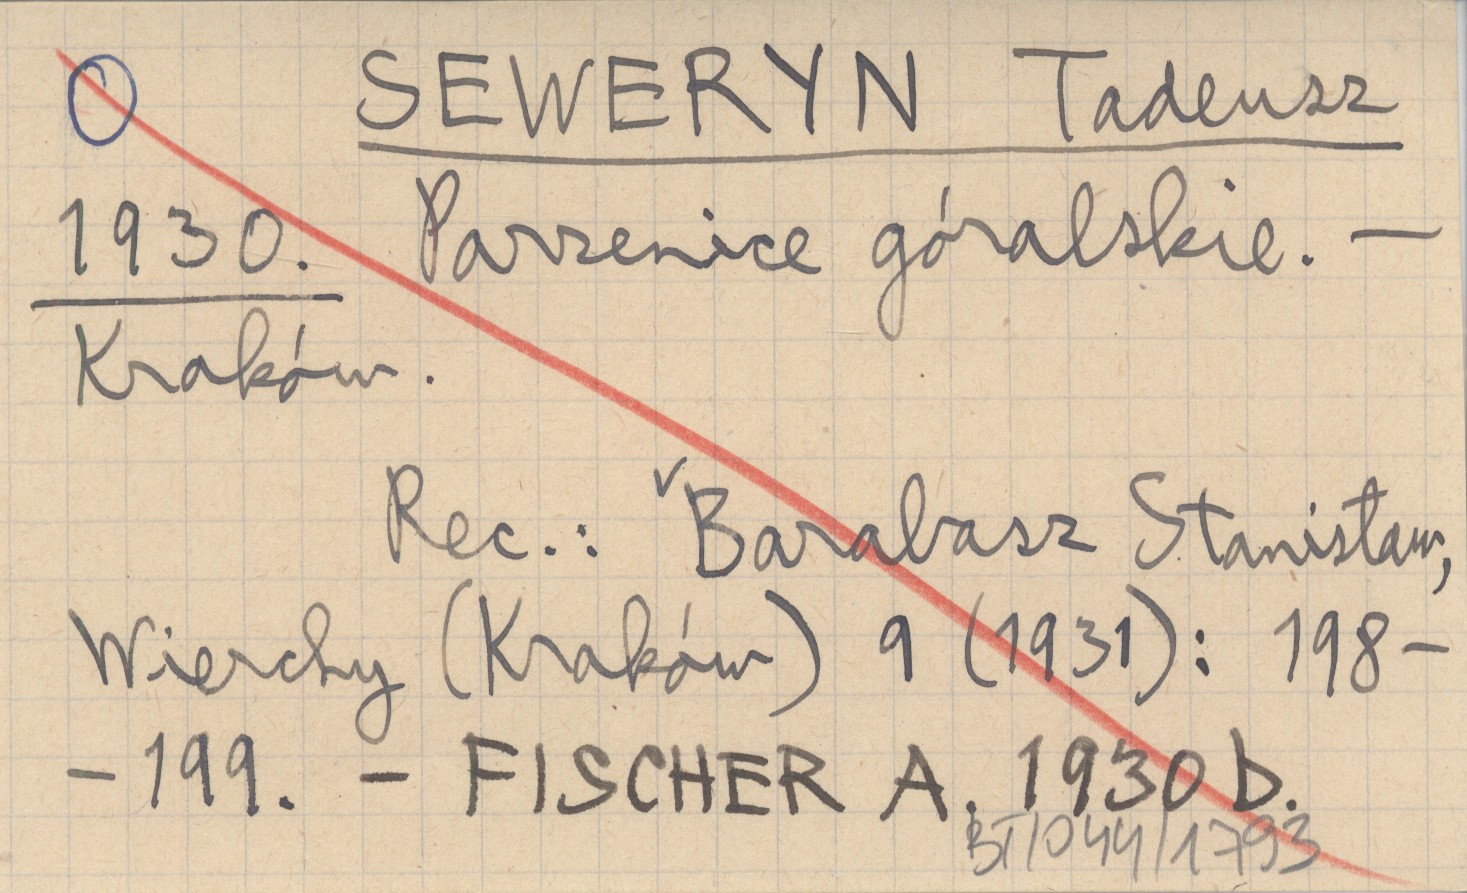 SEWERYN Tadeusz
1930. Parzenice góralskie. —
Kraków.
Rec.: Barabasz Stanisław,
Wierchy (Kraków) 9 (1931): 198-
- 199. - FISCHER A. 1930 b.
BT/044/1793